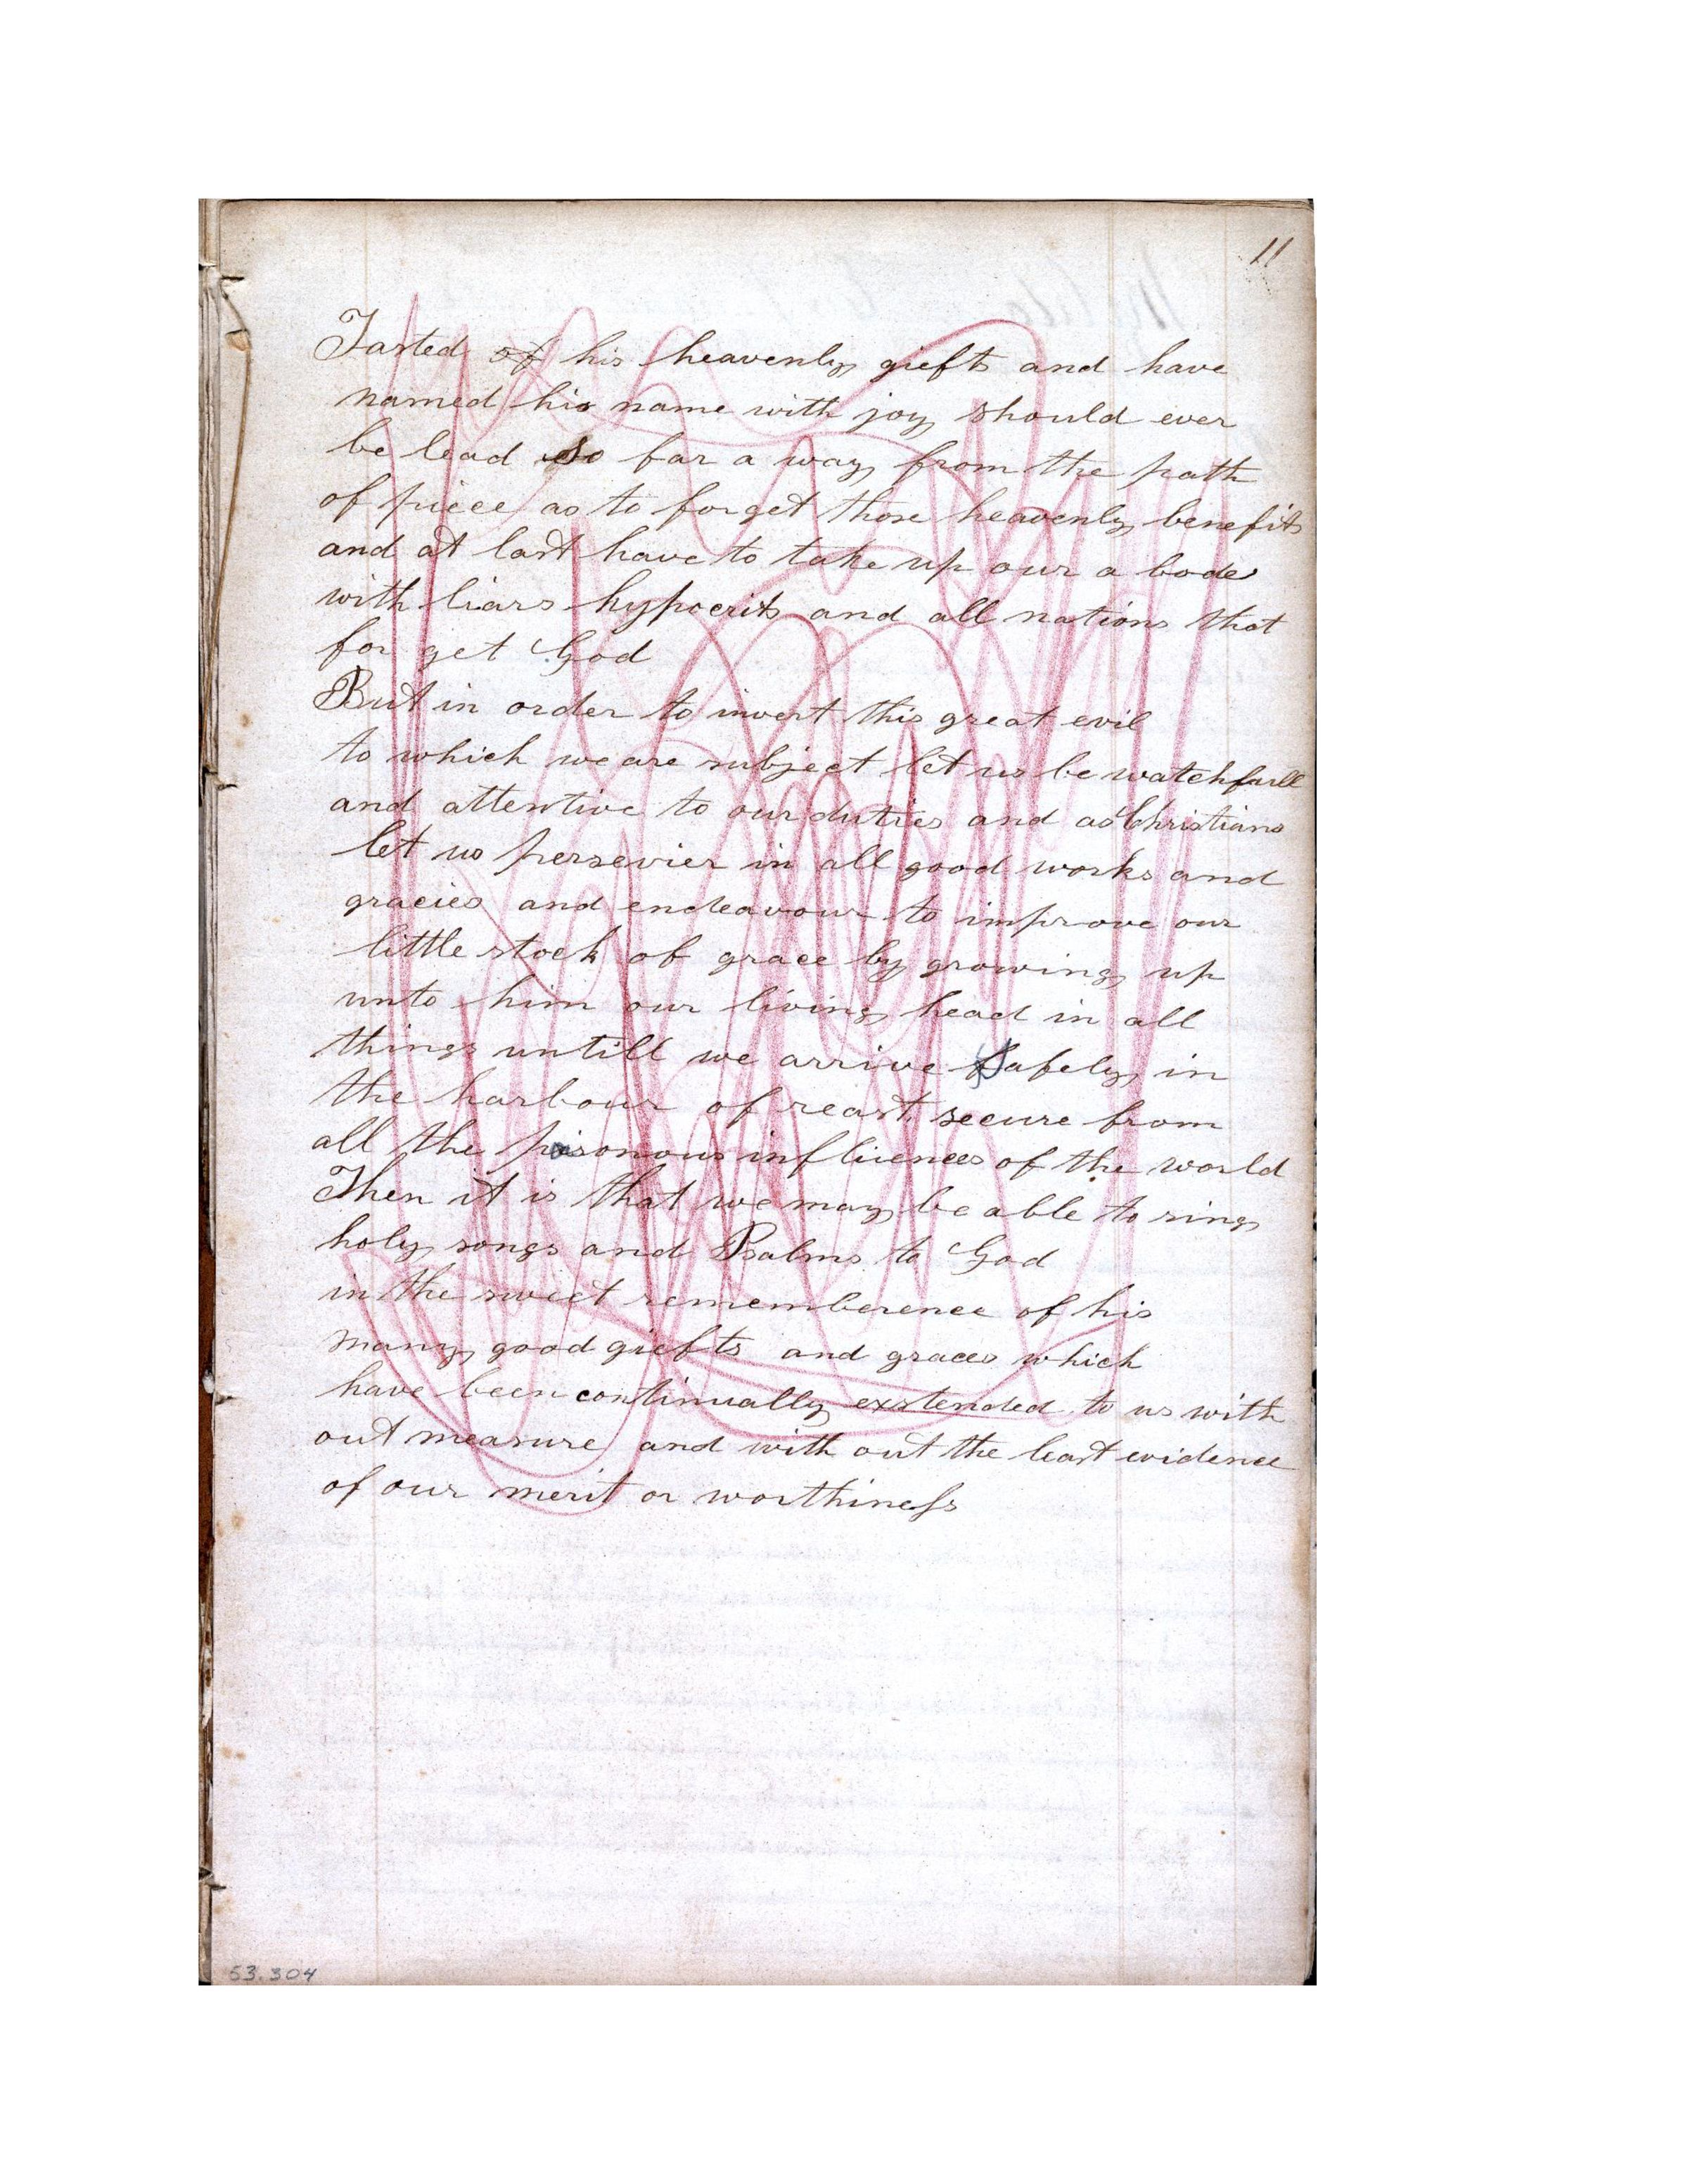 11
Tasted of his heavenly giefts and have
named his name with joy should ever
be lead so far a way from the path
of piece as to forget those heavenly benefits
and at last have to take up our a bode
with liars hypocrits and all nations that
for get God
But in order to invert this great evil
to which we are subject let us be watchfull
and attentive to our duties and as Christians
let us persevier in all good works and
gracies and endeavour to improve our
little stock of grace by growing up
unto him our living head in all
things untill we arrive safely in
the harbour of reast secure from
all the pisonous influences of the world
Then it is that we may be able to sing
holy songs and Psalms to God
in the sweet rememberence of his
many good giefts and graces which
have been continually exstended to us with
out measure and with out the least evidence
of our merit or worthiness
53.304